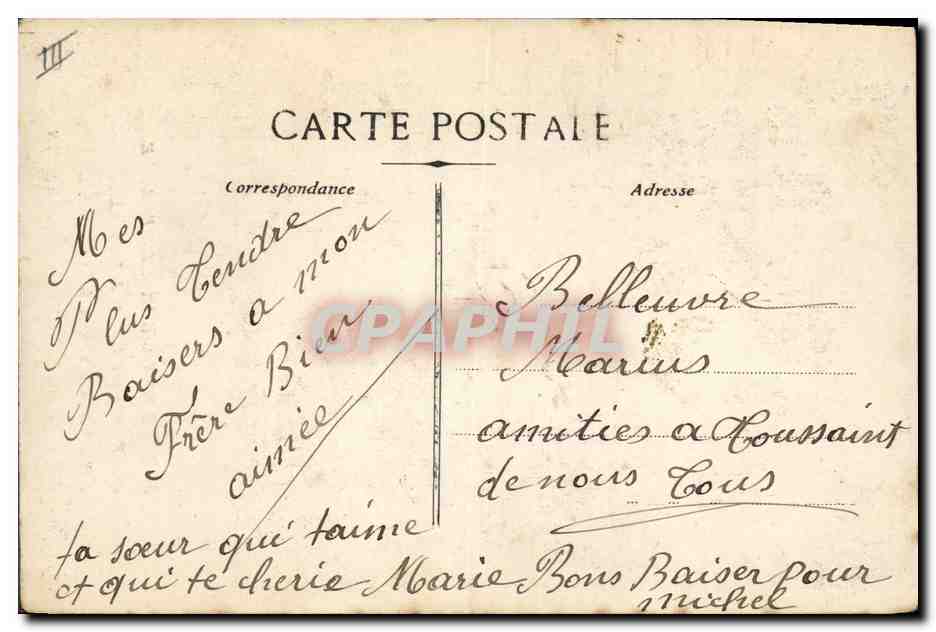 III
CARTE POSTALE
Correspondance
Adresse
Mes
Plus tendre
Baisers a mon
Frère Bien
aimée
ta sœur qui t'aime
et qui te cherie Marie Bons Baiser pour
michel
Belleuvre
Marius
amities a Toussaint
de nous Tous
CPAPHIL